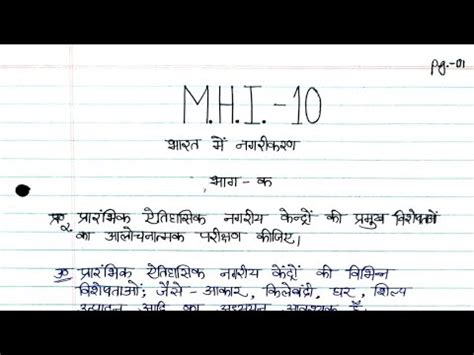 pg.-01
M.H.I.-10
भारत में नगरीकरण
भाग-क
प्र०२. प्रारंभिक ऐतिहासिक नगरीय केन्द्रों की प्रमुख विशेषताओं
का आलोचनात्मक परीक्षण कीजिए।
उ० प्रारंभिक ऐतिहासिक नगरीय केंद्रों की विभिन्न
विशेषताओं; जैसे - आकार, किलेबंदी, घर, शिल्प
उत्पादन आदि का अध्ययन आवश्यक है।